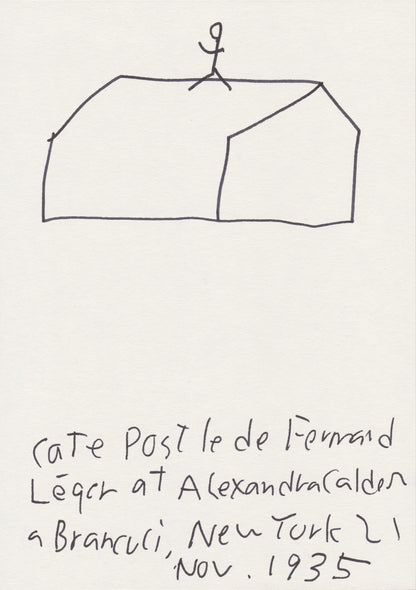 caTe PosT le de Fernand
Léger at AlexandraCalder
a Brancuci, New York 21
Nov. 1935